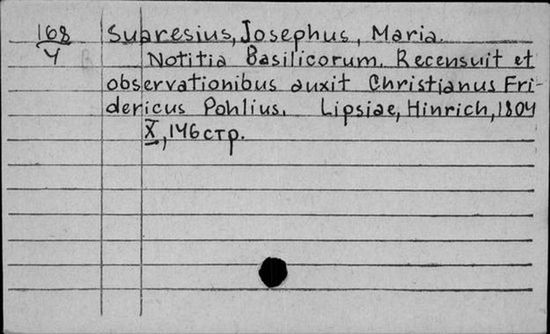 168 Suaresius, Josephus, Maria.
4 Notitia Basilicorum. Recensuit et
observationibus auxit Christianus Fri-
dericus Pohlius. Lipsiae, Hinrich, 1804
X, 146 стр.